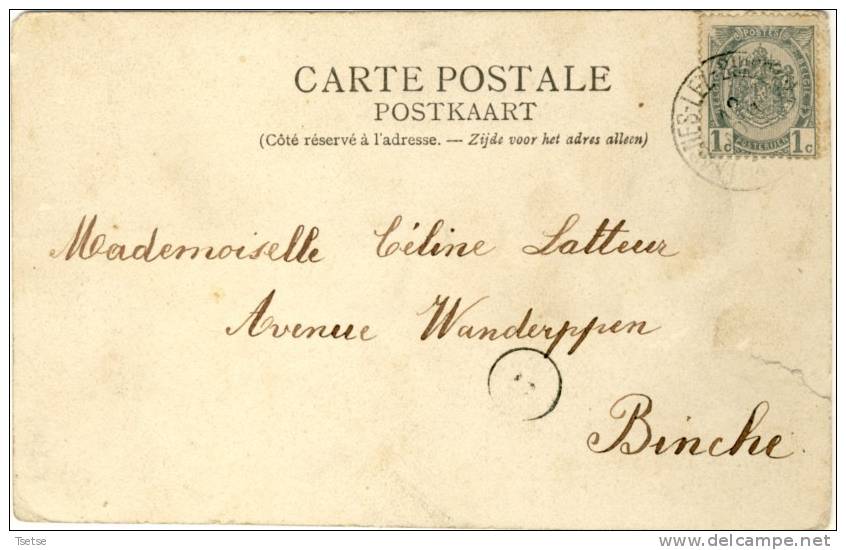 CARTE POSTALE
POSTKAART
(Côté réservé à l'adresse. — Zijde voor het adres alleen)
POSTES
1c POSTERIJEN 1c
NES-LEZ-BINCHE
Mademoiselle Céline Latteur
Avenue Wanderppen
Binche.
Tsetse
delcampe.net